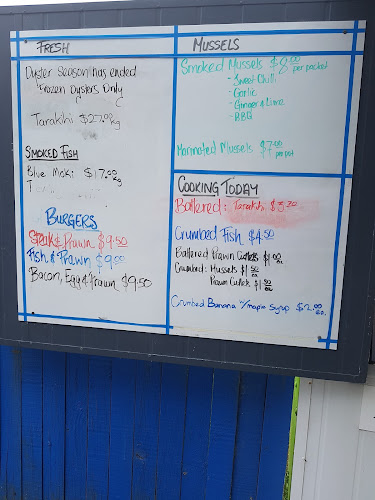 FRESH
Oyster season has ended
*Frozen Oysters Only
Tarakihi $27.00 kg
SMOKED FISH
Blue Moki $17.00 kg
BURGERS
Steak & Prawn $9.50
Fish & Prawn $9.00
Bacon, Egg & Prawn $9.50
MUSSELS
Smoked Mussels $8.00 per packet
- Sweet Chilli
- Garlic
- Ginger & Lime
- BBQ
Marinated Mussels $7.00 per pot
COOKING TODAY
Battered: Tarakihi
Crumbed Fish $4.50
Battered Prawn Cutlets $1.00 ea
Crumbed: Mussels $1.50 ea
Prawn Cutlets $1.00 ea
Crumbed Banana w/maple Syrup $2.00 ea.